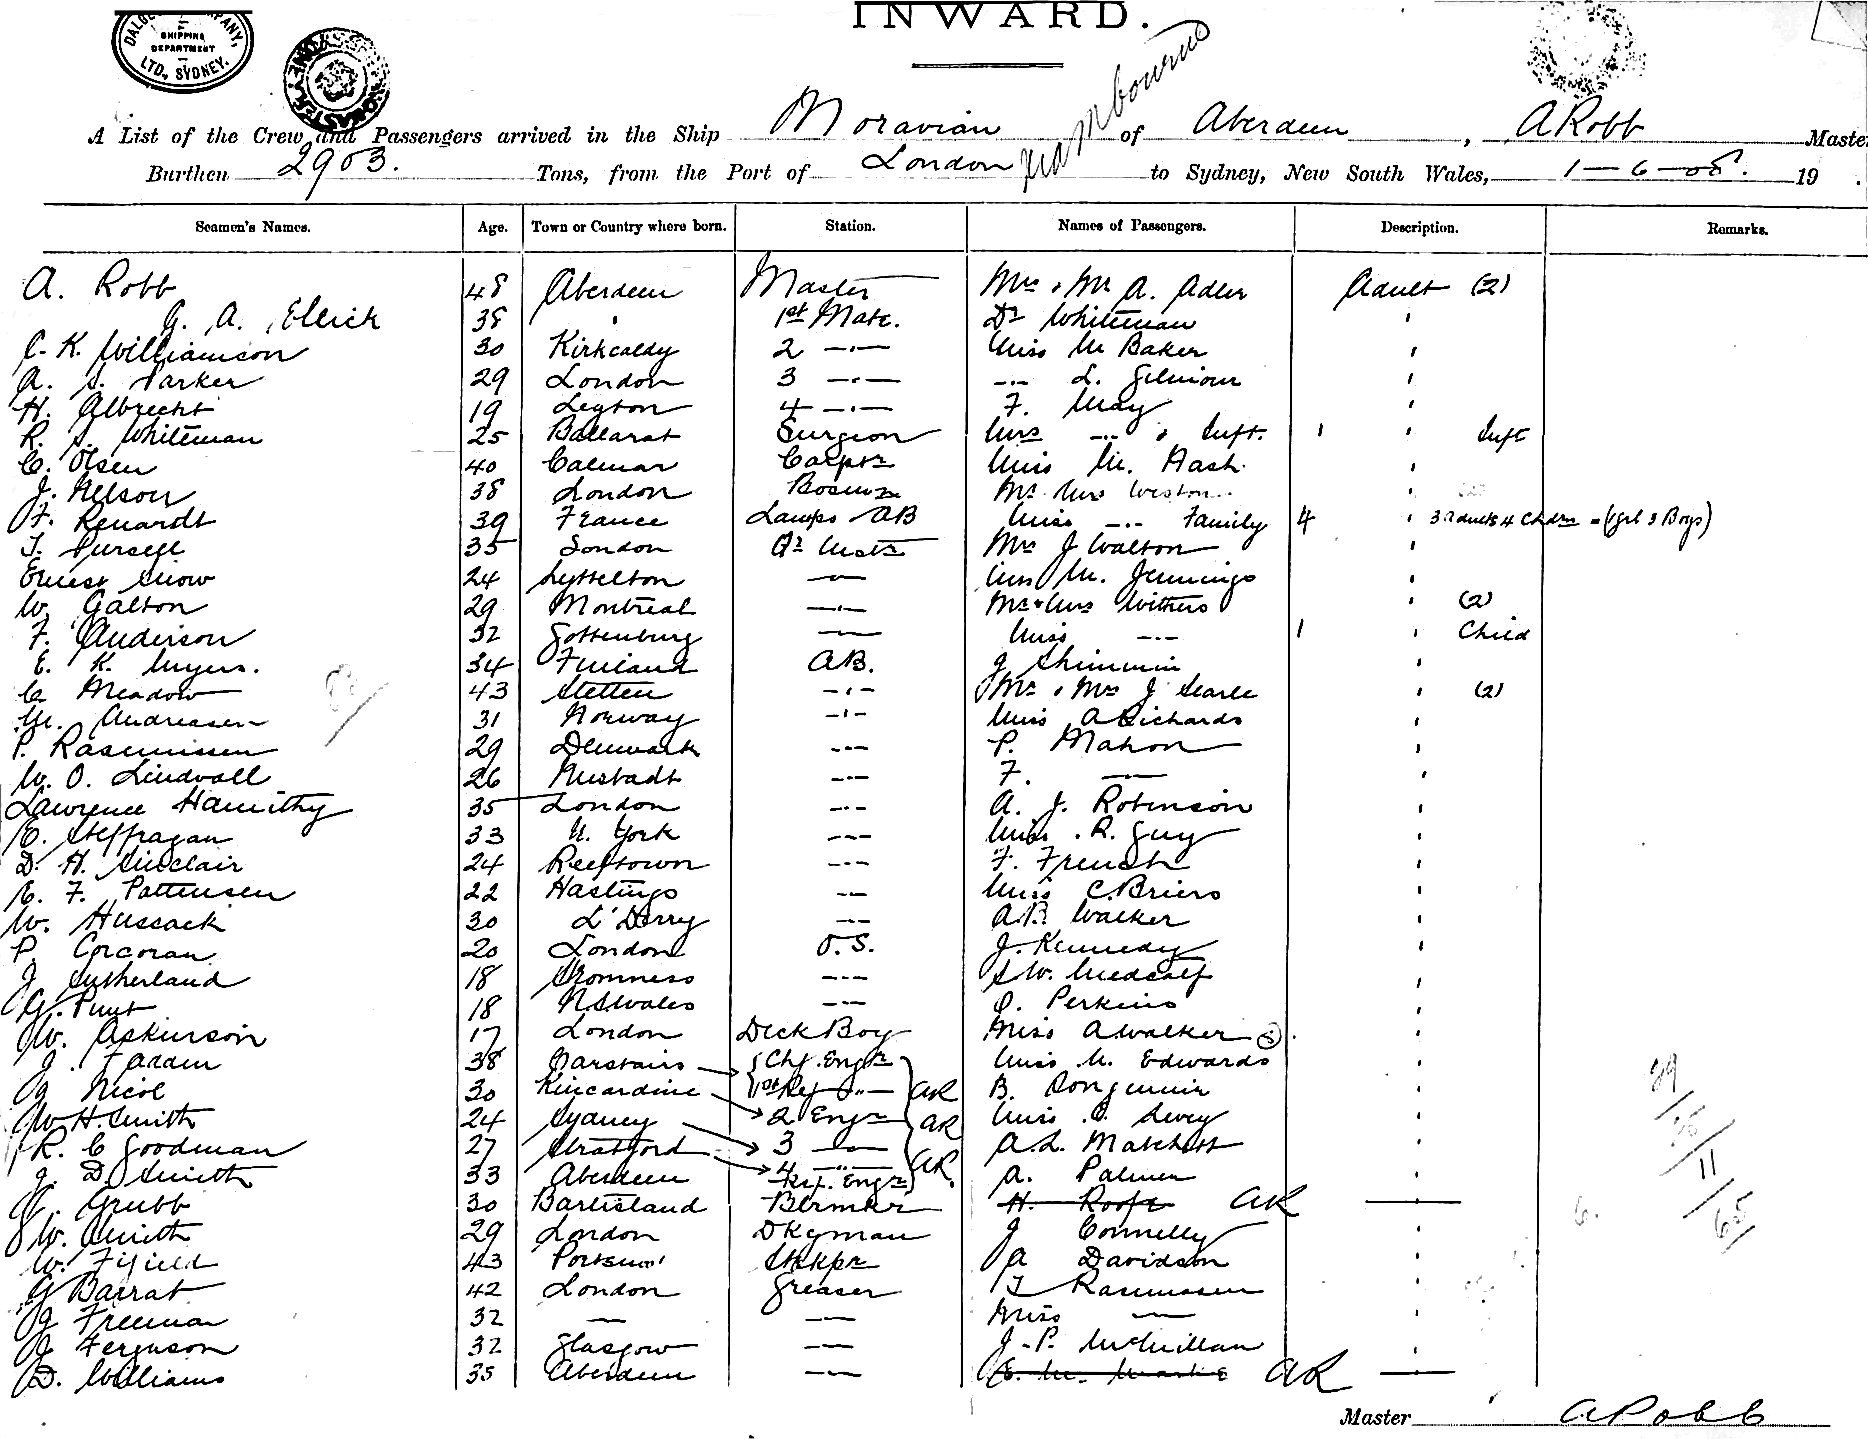 DALGETY & COMPANY, LTD, SYDNEY.
SHIPPING DEPARTMENT
INWARD.
A List of the Crew and Passengers arrived in the Ship Moravian of Aberdeen, A Robb Master
via Melbourne
Burthen 2903. Tons, from the Port of London to Sydney, New South Wales, 1-6-05. 19 .
Seamen's Names. Age. Town or Country where born. Station. Names of Passengers. Description. Remarks.
A. Robb 48 Aberdeen Master Mrs & Mr A. Adler Adult (2)
G. A. Ellrick 38 " 1st Mate. Dr Whiteman "
C. K. Williamson 30 Kirkcaldy 2 -"- Miss M Baker "
A. S. Parker 29 London 3 -"- -"- L. Gilmour "
H. Albrecht 19 Leyton 4 -"- F. May "
R. S. Whiteman 25 Ballarat Surgeon Mrs -"- & Inft. 1 " Inft
C. Olsen 40 Calmar Carptr Miss M. Nash "
J. Nelson 38 London Bosun Mr Mrs Weston "
F. Renardt 39 France Lamps AB Miss -"- Family 4 " 3 adults 4 Chdrn = (1 girl 3 Boys)
T. Pursell 35 London Qr Mstr Mrs J Walton "
Ernest Snow 24 Lyttelton -"- Miss M. Jennings "
W. Galton 29 Montreal -"- Mr & Mrs Withers " (2)
F. Anderson 32 Gottenburg -"- Miss -"- 1 " Child
E. K. Myers. 34 Finland AB. J Shimmin "
C Meadow 43 Stetten -"- Mr & Mrs J Searle " (2)
M. Andreasen 31 Norway -"- Miss A Richards "
P. Rasmussen 29 Denmark -"- P. Mahon "
W. O. Lindvall 26 Nustadt -"- F. -"- "
Lawrence Hamithy 35 London -"- A. J. Robinson "
E. Steffragan 33 N. York -"- Miss R. Guy "
D. H. Sinclair 24 Reeftown -"- F. French "
E. F. Pattensen 22 Hastings -"- Miss C. Briers "
W. Hussack 30 L'Derry -"- A.B. Walker "
P. Corcoran 20 London O.S. J. Kennedy "
J Sutherland 18 Stromness -"- S W. Medcalf "
G. Punt 18 N.S.Wales -"- O. Perkins "
W. Askinson 17 London Deck Boy Miss A Walker "
J. Fadam 38 Carstairs Chf. Engr Miss M. Edwards "
G Nicol 30 Kincardine 1st Ref -"- AR B. Longmuir "
W H. Smith 24 Sydney 2 Engr AR Miss Livey "
R. C Goodman 27 Stratford 3 -"- A. L. Matchett "
J. D. Smith 33 Aberdeen 4 -"- Ref. Engr AR. A. Palmer "
A. Grubb 30 Bartisland Blrmkr H. Roofe AR
W. Smith 29 London Dkyman J Connelly "
W. Fifield 43 Portsm' Stkpr A Davidson "
G Barrat 42 London Greaser T Rasmussen "
G Freeman 32 -"- -"- Miss -"- "
J Ferguson 32 Glasgow -"- J. P. McMillan "
D. Williams 35 Aberdeen -"- AR
Master A Robb